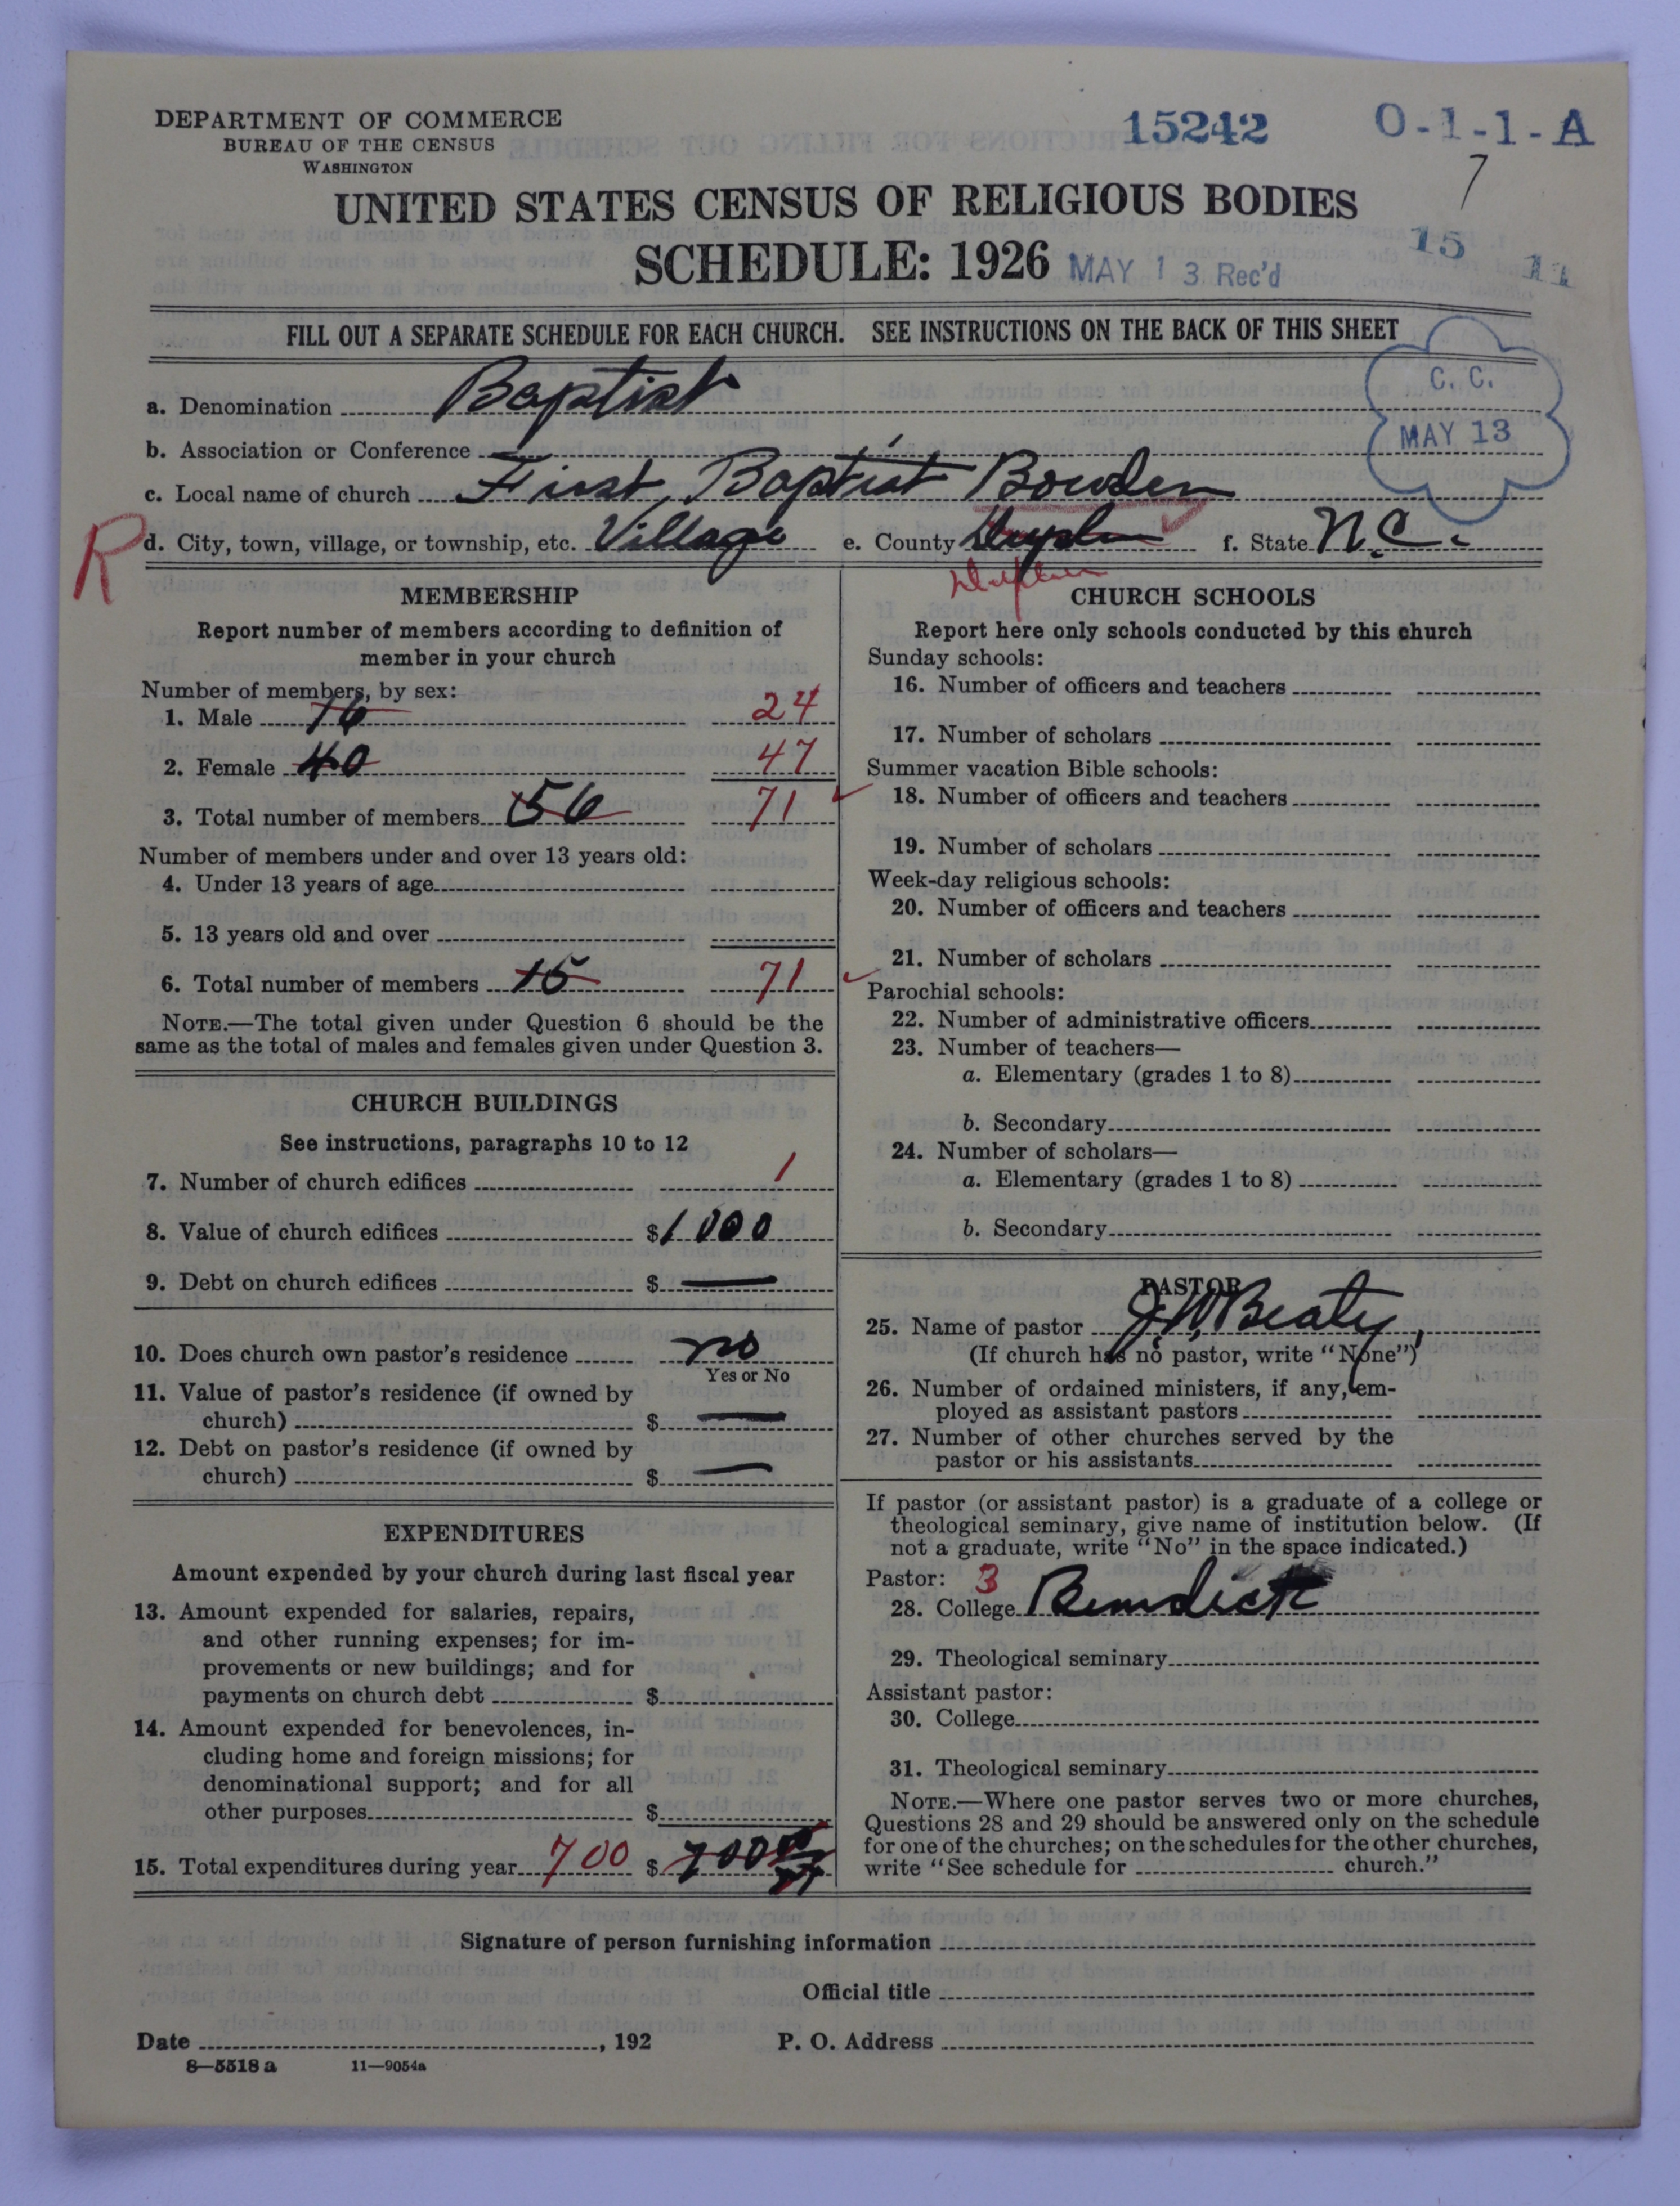 DEPARTMENT OF COMMERCE
BUREAU OF THE CENSUS
WASHINGTON
15242
O-1-1-A
7
UNITED STATES CENSUS OF RELIGIOUS BODIES
SCHEDULE: 1926
MAY 13 Rec'd
15 11
FILL OUT A SEPARATE SCHEDULE FOR EACH CHURCH. SEE INSTRUCTIONS ON THE BACK OF THIS SHEET
C. C.
MAY 13
a. Denomination Baptist
b. Association or Conference
c. Local name of church First Baptist Bowden
R
d. City, town, village, or township, etc. Village e. County Duplin f. State N.C.
Duplin
MEMBERSHIP
Report number of members according to definition of
member in your church
Number of members, by sex:
1. Male 16 24
2. Female 40 47
3. Total number of members 56 71
Number of members under and over 13 years old:
4. Under 13 years of age
5. 13 years old and over
6. Total number of members 15 71
NOTE.—The total given under Question 6 should be the
same as the total of males and females given under Question 3.
CHURCH BUILDINGS
See instructions, paragraphs 10 to 12
7. Number of church edifices 1
8. Value of church edifices $1000
9. Debt on church edifices $ —
10. Does church own pastor's residence no
Yes or No
11. Value of pastor's residence (if owned by
church) $ —
12. Debt on pastor's residence (if owned by
church) $ —
EXPENDITURES
Amount expended by your church during last fiscal year
13. Amount expended for salaries, repairs,
and other running expenses; for im-
provements or new buildings; and for
payments on church debt $
14. Amount expended for benevolences, in-
cluding home and foreign missions; for
denominational support; and for all
other purposes $
15. Total expenditures during year 700 $ 700
CHURCH SCHOOLS
Report here only schools conducted by this church
Sunday schools:
16. Number of officers and teachers
17. Number of scholars
Summer vacation Bible schools:
18. Number of officers and teachers
19. Number of scholars
Week-day religious schools:
20. Number of officers and teachers
21. Number of scholars
Parochial schools:
22. Number of administrative officers
23. Number of teachers—
a. Elementary (grades 1 to 8)
b. Secondary
24. Number of scholars—
a. Elementary (grades 1 to 8)
b. Secondary
PASTOR
25. Name of pastor J. W. Beaty
(If church has no pastor, write "None")
26. Number of ordained ministers, if any, em-
ployed as assistant pastors
27. Number of other churches served by the
pastor or his assistants
If pastor (or assistant pastor) is a graduate of a college or
theological seminary, give name of institution below. (If
not a graduate, write "No" in the space indicated.)
Pastor: 3
28. College Benedict
29. Theological seminary
Assistant pastor:
30. College
31. Theological seminary
NOTE.—Where one pastor serves two or more churches,
Questions 28 and 29 should be answered only on the schedule
for one of the churches; on the schedules for the other churches,
write "See schedule for church."
Signature of person furnishing information
Official title
Date , 192 P. O. Address
8—5518 a 11—9054a